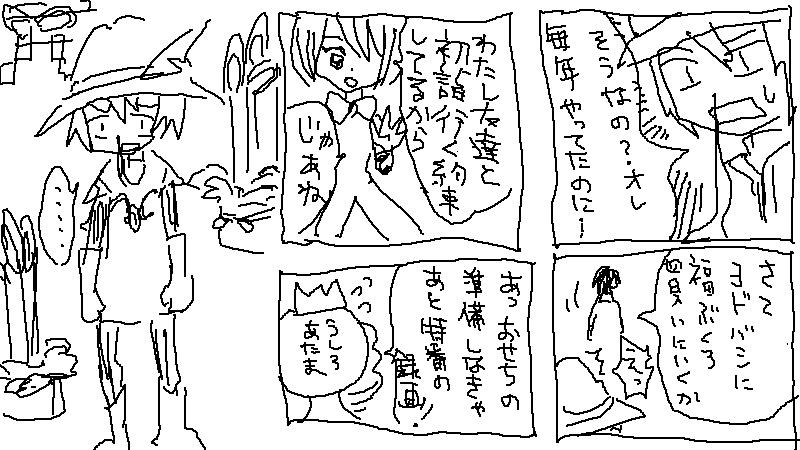 そうなの？オレ
毎年やってたのに！
さて
ヨドバシに
福ぶくろ
買いにいくか
えっ
わたし友達と
初詣行く約束
してるから
じゃあね
あっおせちの
準備しなきゃ
あと特番の
録画！
うしろ
あたま
……